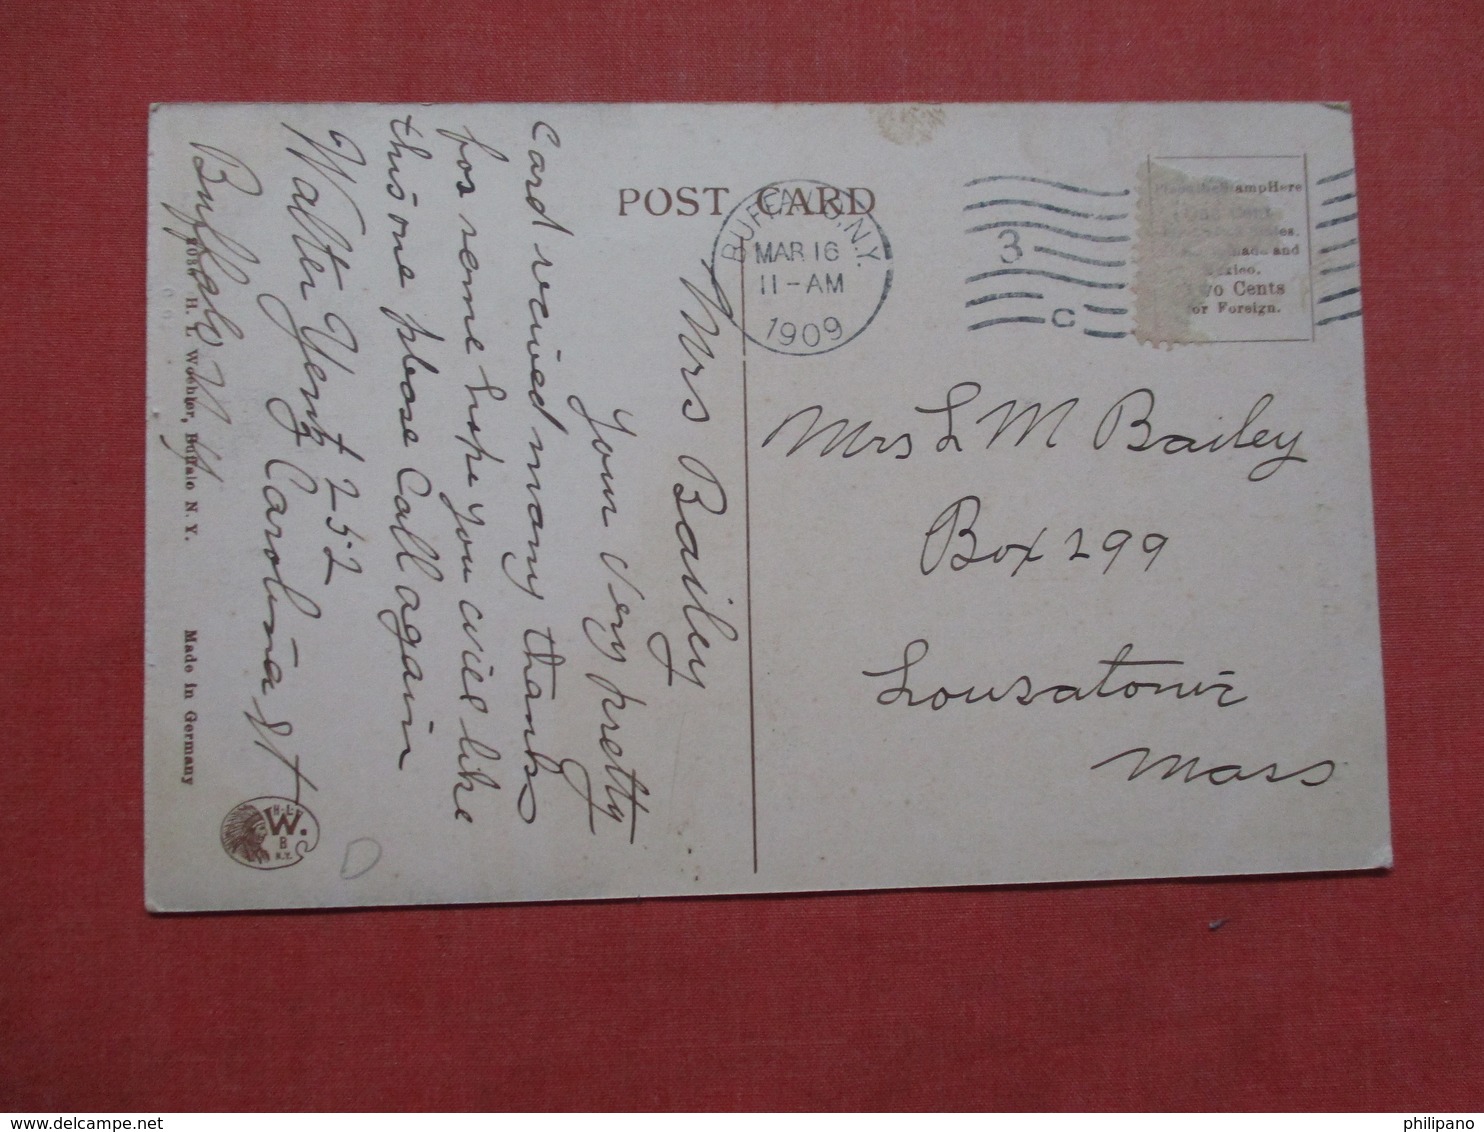 POST CARD
BUFFALO, N.Y.
MAR 16
11-AM
1909
3
C
Place the Stamp Here
One Cent
and
Two Cents
for Foreign.
Mrs L M Bailey
Box 299
Housatonic
Mass
Mrs Bailey
Your very pretty
Card recived many thanks
for same hope you will like
this one please Call again
Walter 252
Carolina St
Buffalo N Y
H. L. Woehler, Buffalo N. Y.
Made in Germany
H.L.
W.
B
N.Y.
D
philipano